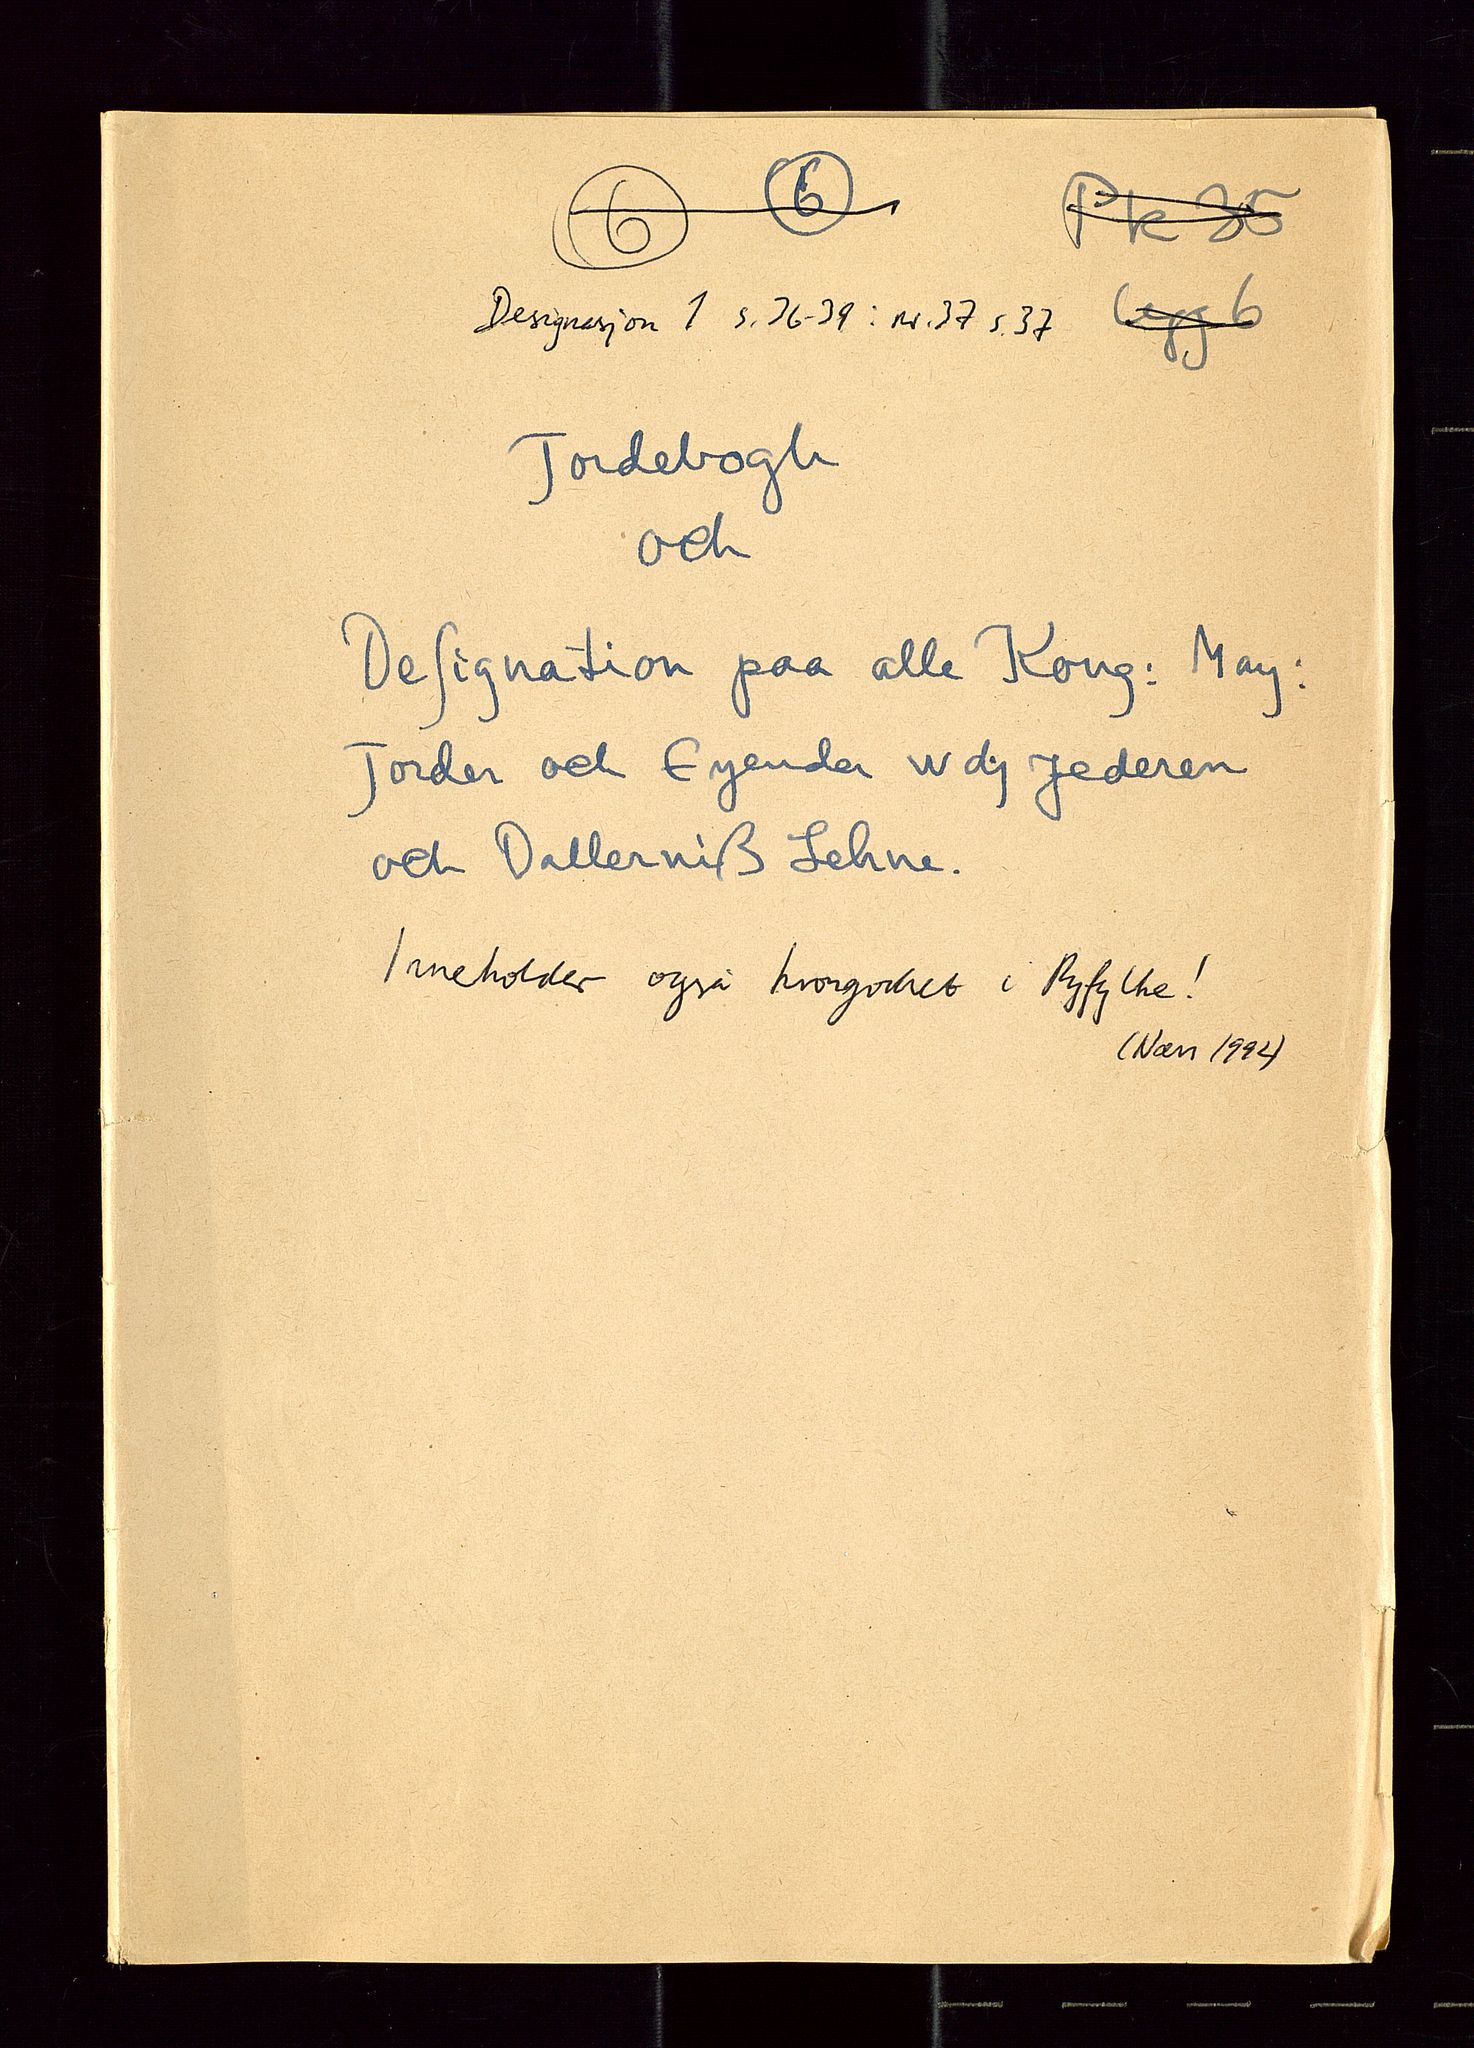 6 6 Pk 35
Designasjon 1 s. 36-39 : nr. 37 s. 37 legg 6
Jordebogh
och
Designation paa alle Kong: May:
Jorder och Eyender wdj Jederen
och Dallerniß Lehne.
Inneholder også krongodset i Ryfylke!
(Næss 1994)